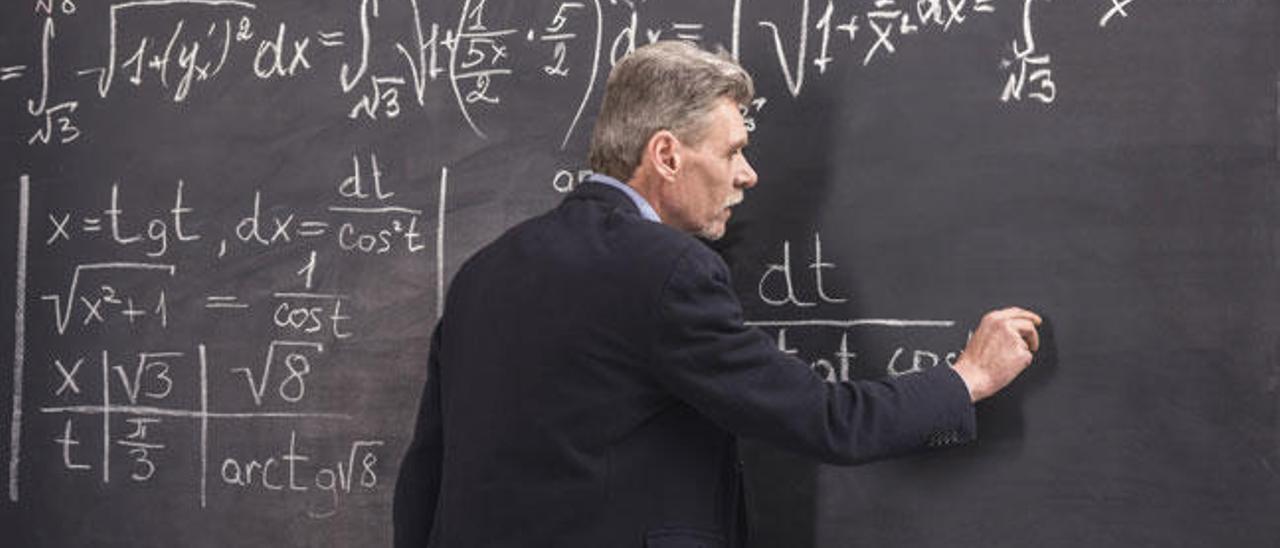 = ∫√3 √1+(y'x)² dx = ∫√3 √1+(1/(5x/2) · 5/2) dx = ∫ √1+ x² dx = ∫√3 x
x = tgt , dx = dt/cos²t
√x²+1 = 1/cost
x | √3 | √8
t | π/3 | arctg√8
dt
tgt cos